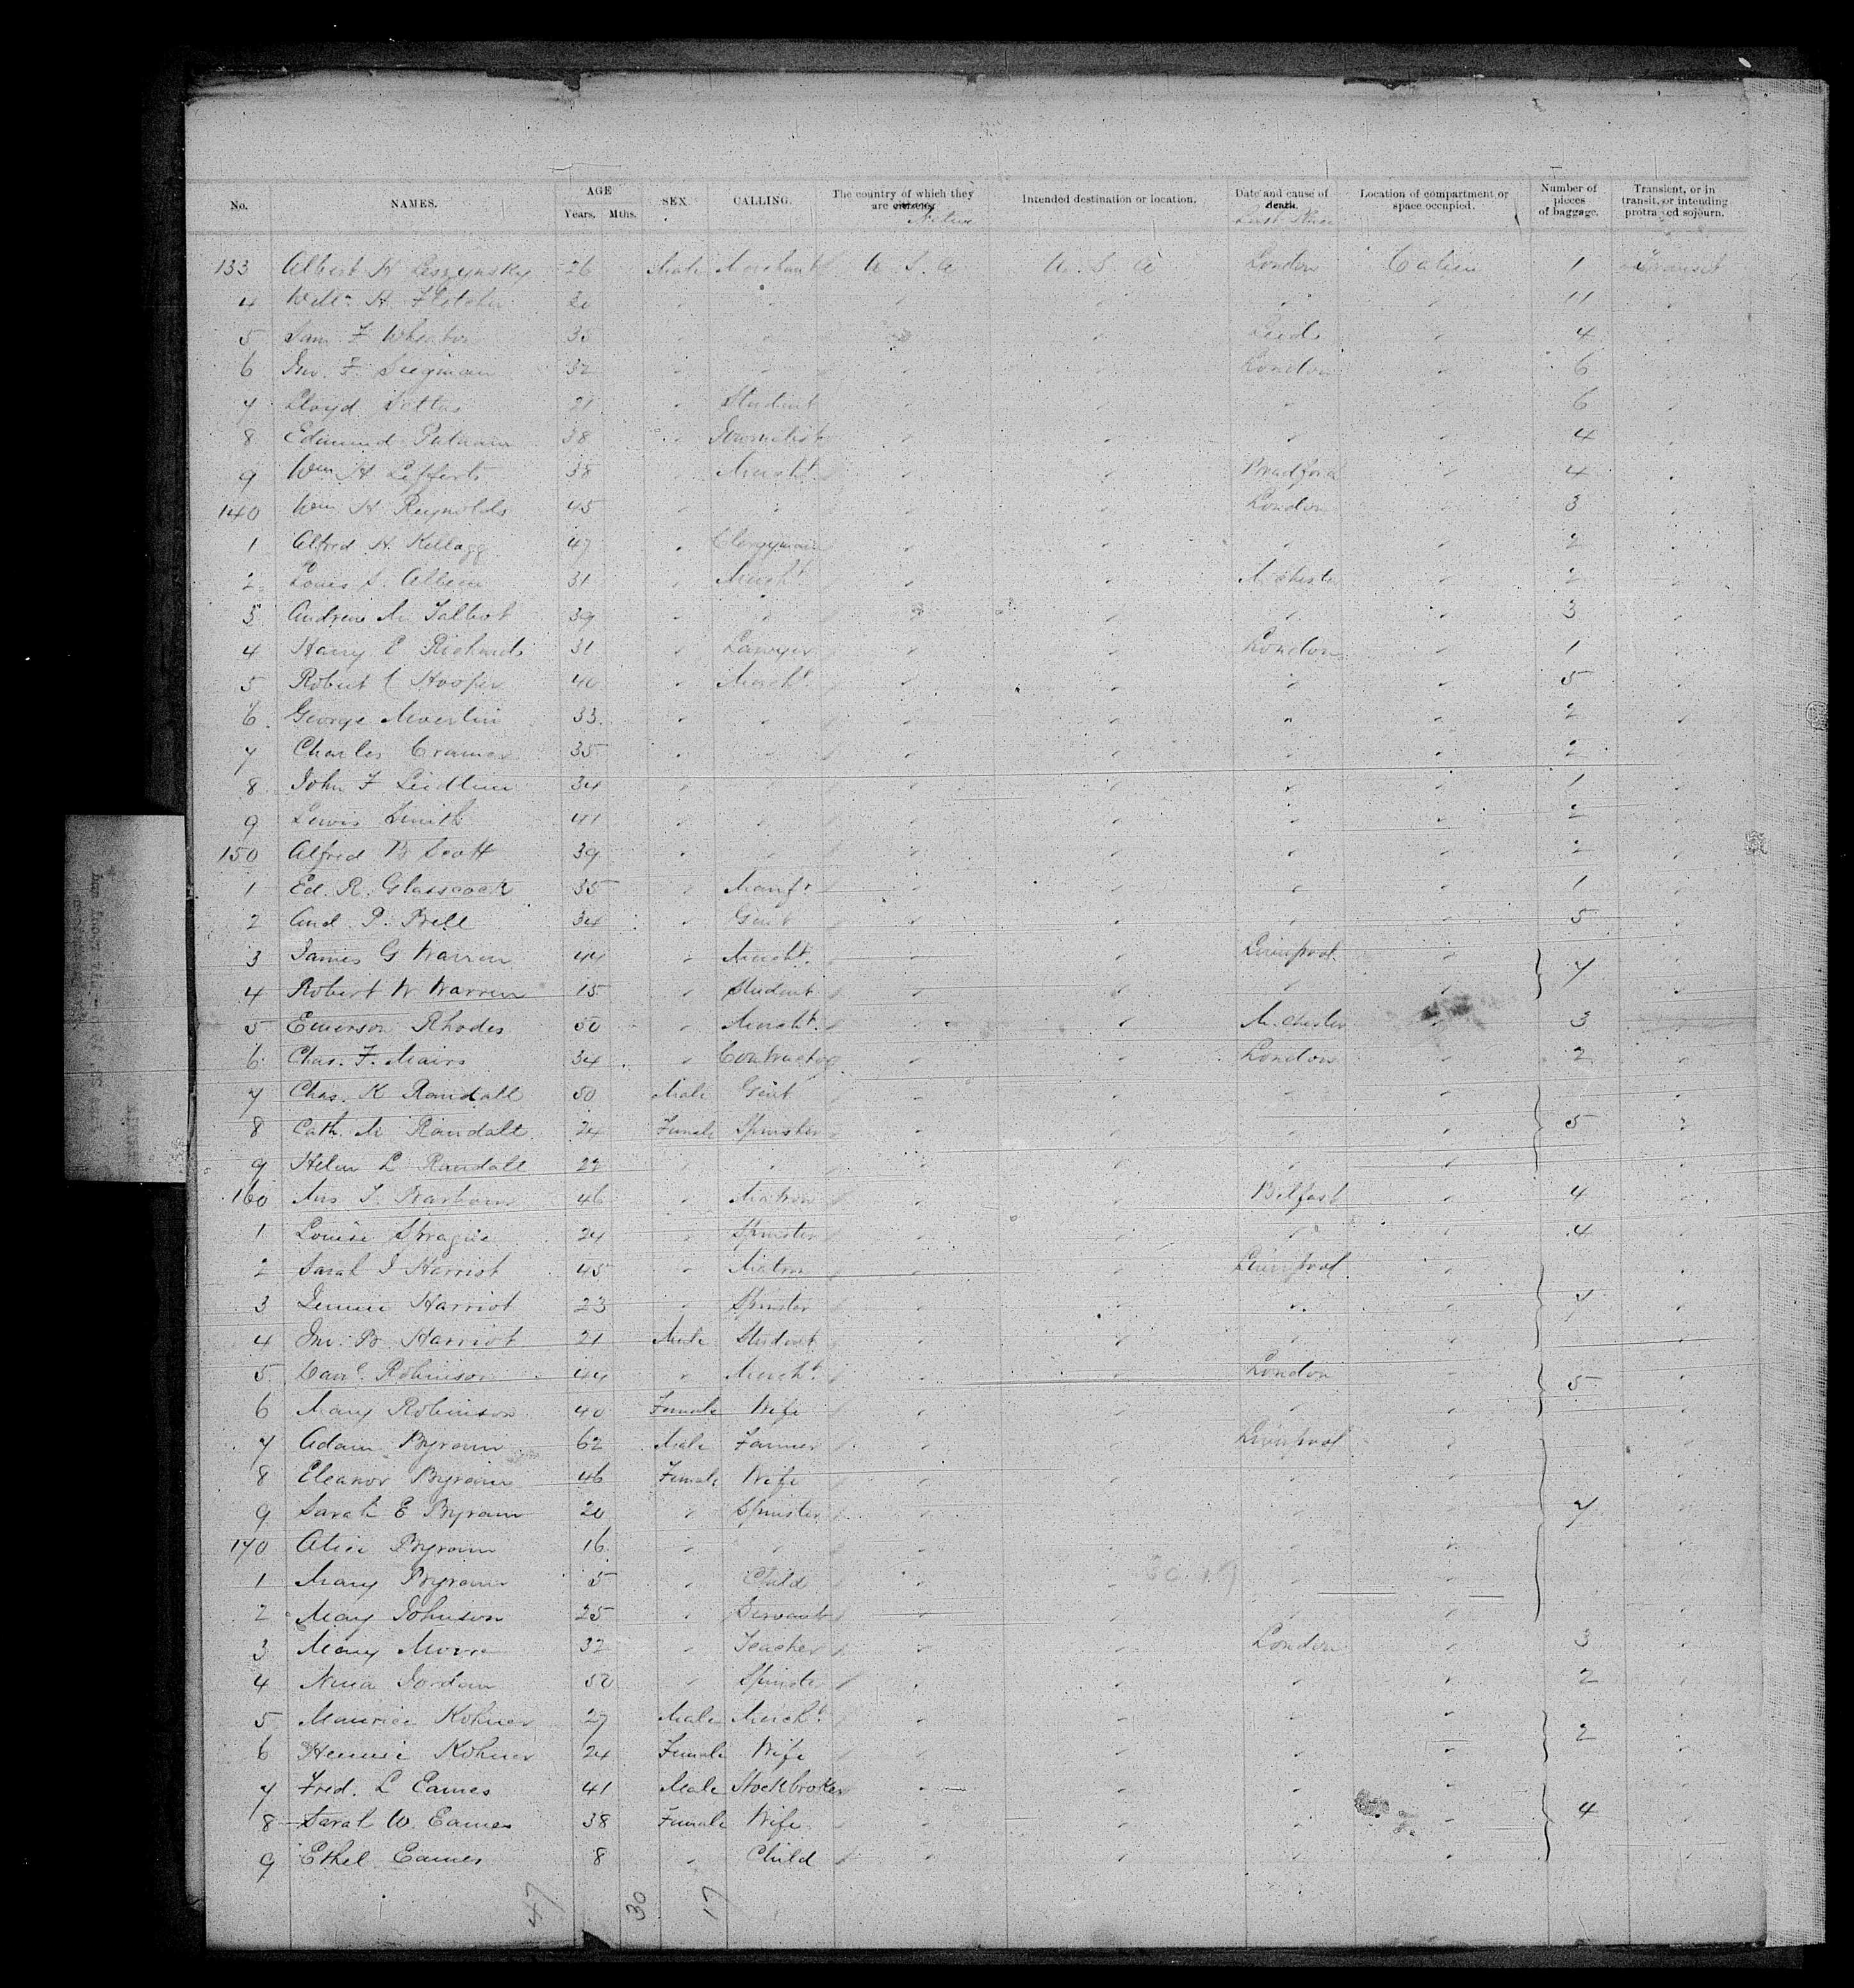 No. NAMES. AGE Years. Mths. SEX CALLING. The country of which they are citizens Native Intended destination or location. Date and cause of death. Last Place Location of compartment or space occupied. Number of pieces of baggage. Transient, or in transit, or intending protracted sojourn.
133 Albert H Leszynsky 26 Male Merchant U S A U. S. A London Cabin 1 Transit
4 Willm H. Fletcher 11
5 Sam F 35 " " " " Leeds " 4 "
6 Jno. F. Siegman 32 " " " " London " 6 "
7 Lloyd 21 " Student " " " " 6 "
8 Edmund Putnam 38 " Journalist " " " " 4 "
9 Wm H Lefferts 38 Mercht. " " Bradford " 4 "
140 Wm H Reynolds 45 " " " " London " 3 "
1 Alfred H. Kellogg 47 " Clergyman " " " " 2 "
2 Louis 31 " Mercht. " " M chester " 2 "
3 Andrew M Talbot 39 " " " " " " 3 "
4 Harry E Richards 31 " Lawyer " " London " 1 "
5 Robert C Hooper 40 " Mercht. " " " " 5 "
6 George 33 " " " " " " 2 "
7 Charles Cramer 35 " " " " " " 2 "
8 John F 34 " " " " " " 1 "
9 Lewis Smith 41 " " " " " " 2 "
150 Alfred B Scott 39 " " " " " " 2 "
1 Ed. R. Glasscock 35 " Manfr " " " " 1 "
2 And. P. Bell 34 " Gent " " " " 5 "
3 James G Warren 44 " Mercht. " " Liverpool " 7 "
4 Robert W Warren 15 " Student " " " " "
5 Emerson Rhodes 50 " Mercht. " " M. chester " 3 "
6 Chas. F. Mairs 34 " Contractor " " London " 2 "
7 Chas. K Randall 50 Male Gent " " " " "
8 Cath. M Randall 24 Female Spinster " " " " 5 "
9 Helen L Randall 22 " " " " " " "
160 Mrs 46 " Matron " " Belfast " 4 "
1 Louise Sprague 24 " Spinster " " " " 4 "
2 Sarah J Harriot 45 " Matron " " Liverpool " "
3 Jennie Harriot 23 " Spinster " " " " 7 "
4 Jno. B. Harriot 21 Male Student " " " " "
5 Robinson 44 " Mercht. " " London " 5 "
6 Mary Robinson 40 Female Wife " " " " "
7 Adam Byram 62 Male Farmer " " Liverpool " "
8 Eleanor Byram 46 Female Wife " " " " "
9 Sarah E Byram 20 " Spinster " " " " 7 "
170 Alice Byram 16 " " " " " " "
1 Mary Byram 5 " Child " " " " "
2 May Johnson 25 " Servant " " " " "
3 Mary 32 " Teacher " " London " 3 "
4 Nina Jordan 50 " Spinster " " " " 2 "
5 Maurice Kohner 27 Male Mercht. " " " " 2 "
6 Hennie Kohner 24 Female Wife " " " " "
7 Fred. L Eames 41 Male Stockbroker " " " " "
8 Sarah W. Eames 38 Female Wife " " " " 4 "
9 Ethel Eames 8 " Child " " " " "
47 30 17